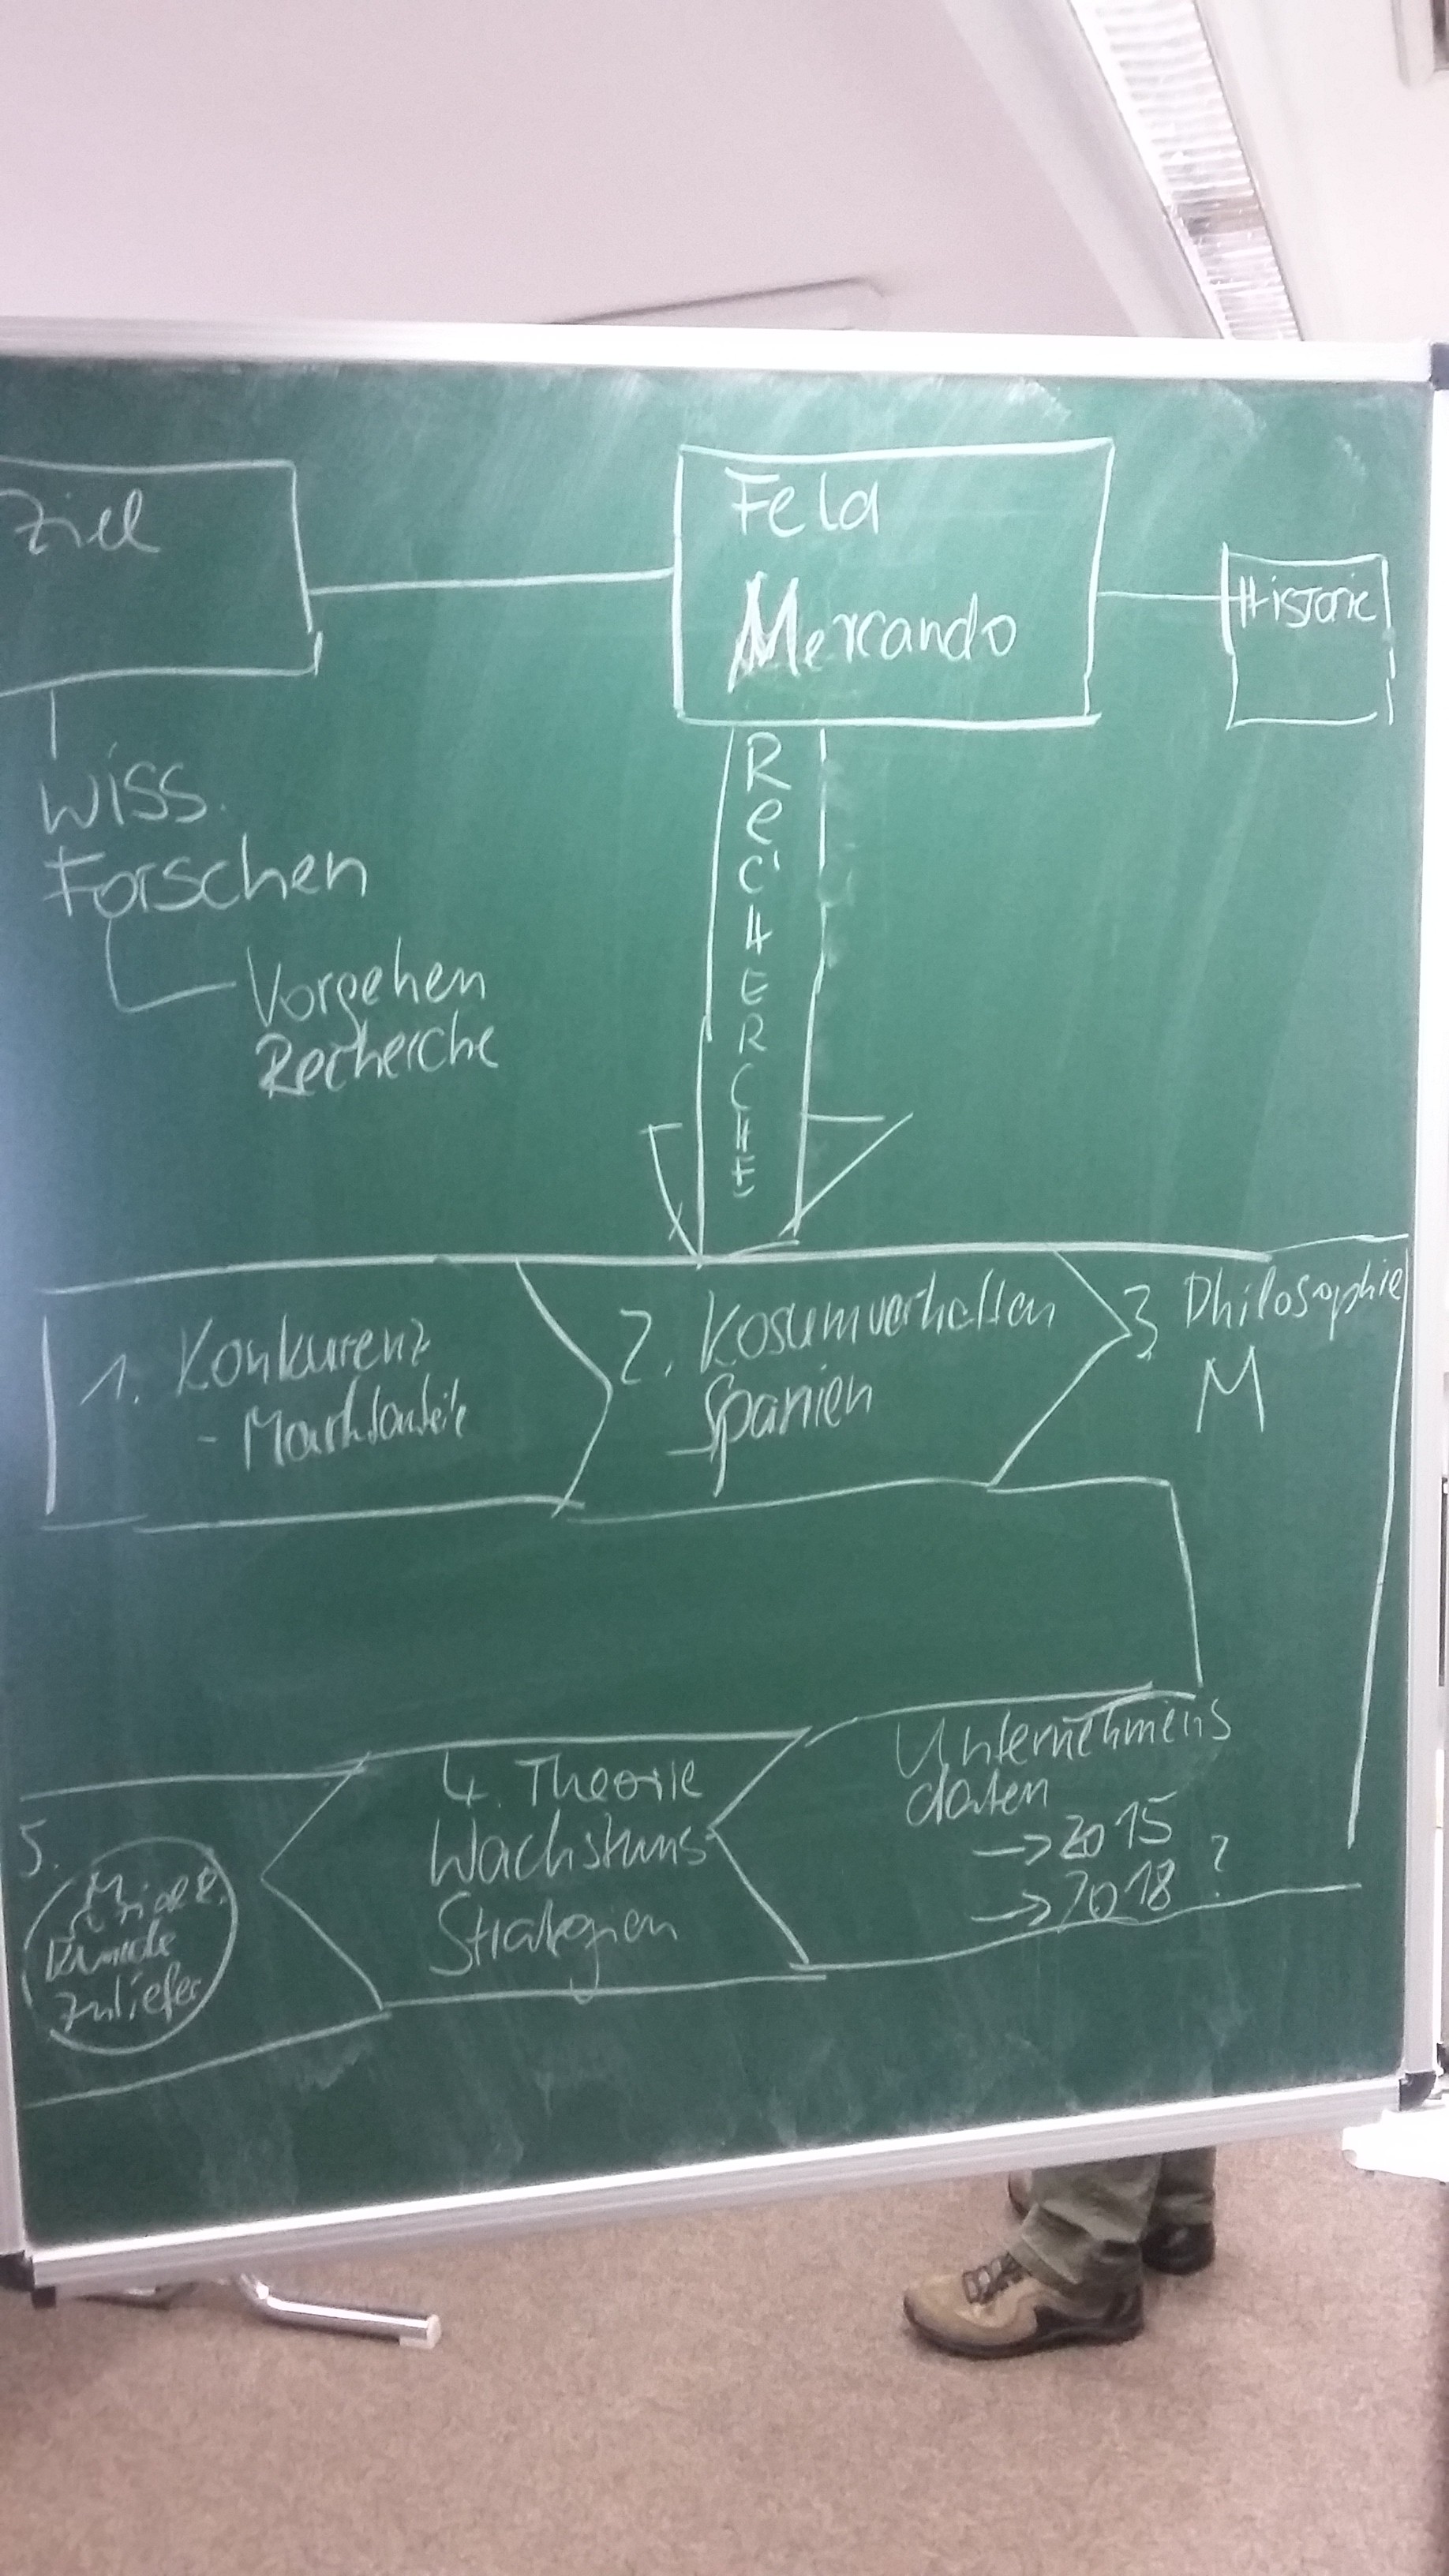 Ziel
Feld
Mercando
Historie
Wiss.
Forschen
Vorgehen
Recherche
RECHERCHE
1. Konkurenz
- Marktanteile
2. Kosumverhalten
Spanien
3 Philosophie
M
Unternehmens
daten
→ 2015
→ 2018 ?
4. Theorie
Wachstums
Strategien
5.
Kunde
Zuliefer